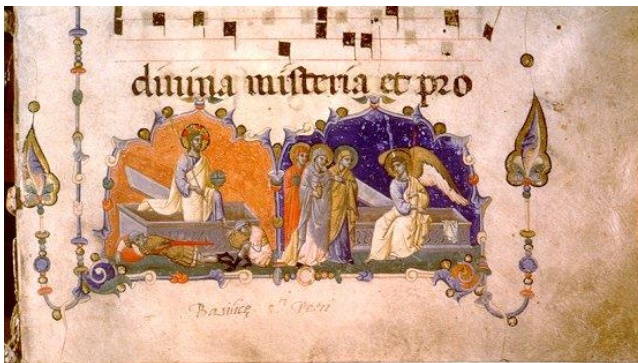 diuina misteria et pro
Basilice sti Petri